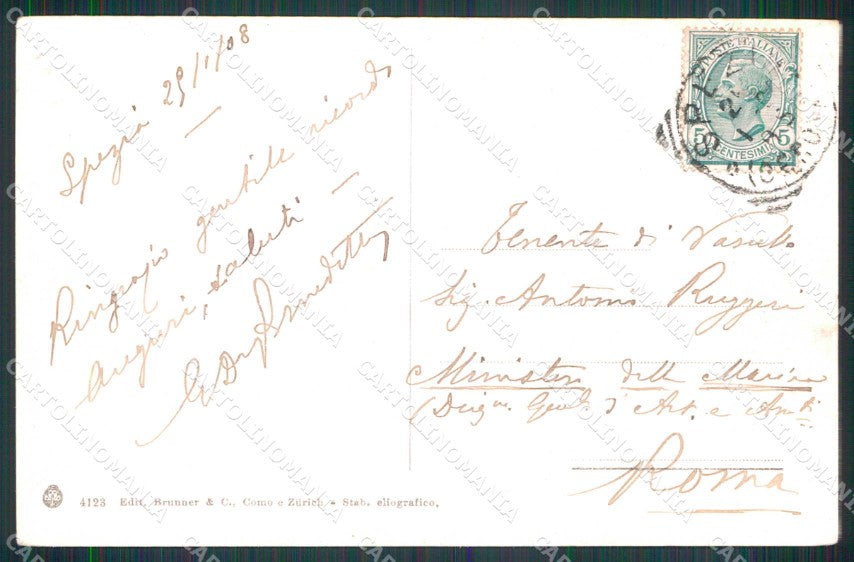 Spezia 29/1/08
Ringrazio gentile ricordo
auguri, saluti
POSTE ITALIANE
5 CENTESIMI 5
Tenente di Vascello
Sig. Antonio Ruggeri
Ministero della Marina
(Direz.ne Gen.le d'Art. e Arm.ti
Roma
4123 Edit. Brunner & C., Como e Zürich - Stab. eliografico.
CARTOLINOMANIA